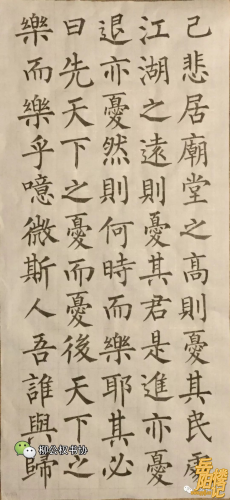 己悲居廟堂之高則憂其民處
江湖之遠則憂其君是進亦憂
退亦憂然則何時而樂耶其必
曰先天下之憂而憂後天下之
樂而樂乎噫微斯人吾誰與歸
柳公权书协
岳阳楼记